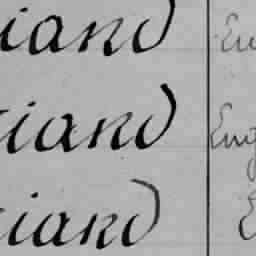 iand En
iand Eng
iand E